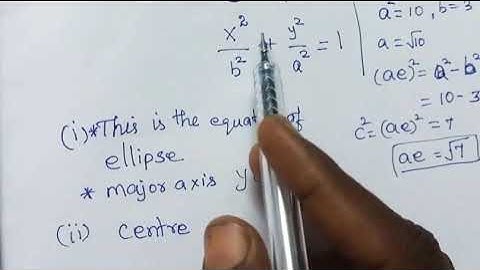 x²/b² + y²/a² = 1
(i) * This is the equat of
ellipse
* major axis y
(ii) centre
a² = 10, b = 3
a = √10
(ae)² = a² - b
= 10 - 3
c² = (ae)² = 7
ae = √7